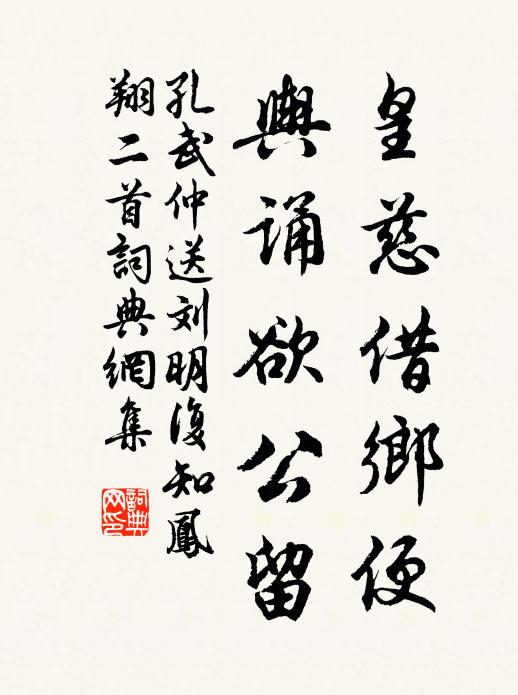 皇慈借鄉便
輿誦欲公留
孔武仲送刘明復知鳳
翔二首詞典網集
詞典网印